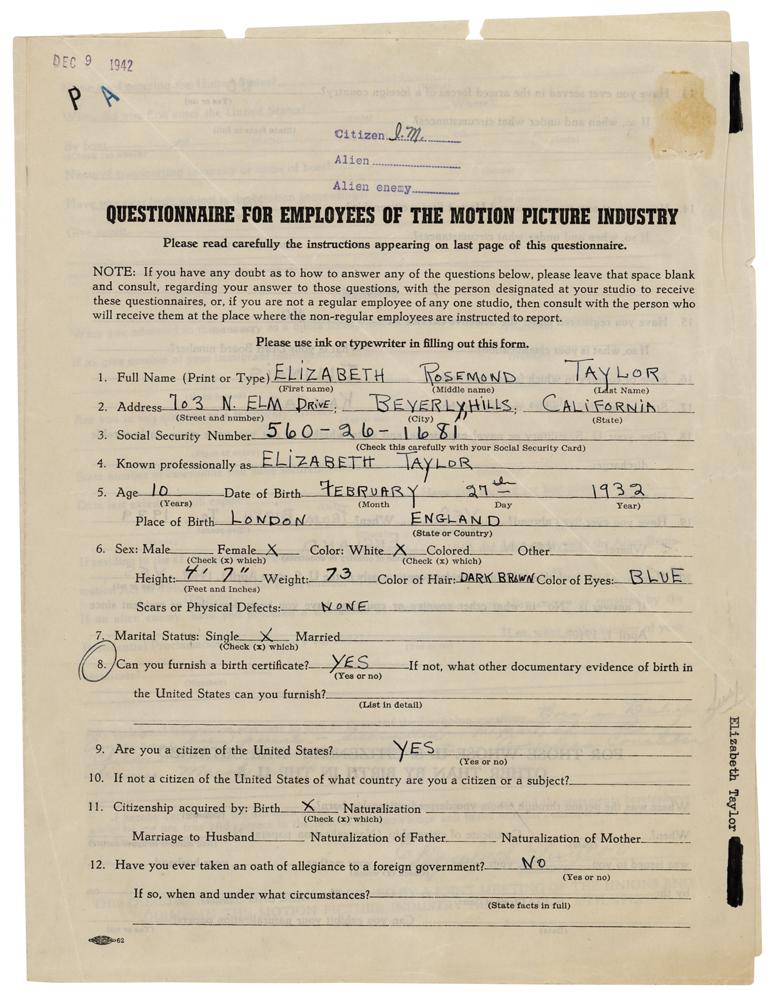 DEC 9 1942
P A
Citizen I.M.
Alien
Alien enemy
QUESTIONNAIRE FOR EMPLOYEES OF THE MOTION PICTURE INDUSTRY
Please read carefully the instructions appearing on last page of this questionnaire.
NOTE: If you have any doubt as to how to answer any of the questions below, please leave that space blank
and consult, regarding your answer to those questions, with the person designated at your studio to receive
these questionnaires, or, if you are not a regular employee of any one studio, then consult with the person who
will receive them at the place where the non-regular employees are instructed to report.
Please use ink or typewriter in filling out this form.
1. Full Name (Print or Type) ELIZABETH ROSEMOND TAYLOR
(First name) (Middle name) (Last Name)
2. Address 703 N. ELM DRIVE; BEVERLY HILLS; CALIFORNIA
(Street and number) (City) (State)
3. Social Security Number 560-26-1681
(Check this carefully with your Social Security Card)
4. Known professionally as ELIZABETH TAYLOR
5. Age 10 Date of Birth FEBRUARY 27th 1932
(Years) (Month Day Year)
Place of Birth LONDON ENGLAND
(State or Country)
6. Sex: Male Female X Color: White X Colored Other
(Check (x) which) (Check (x) which)
Height: 4' 7" Weight: 73 Color of Hair: DARK BROWN Color of Eyes: BLUE
(Feet and Inches)
Scars or Physical Defects: NONE
7. Marital Status: Single X Married
(Check (x) which)
8. Can you furnish a birth certificate? YES If not, what other documentary evidence of birth in
(Yes or no)
the United States can you furnish?
(List in detail)
9. Are you a citizen of the United States? YES
(Yes or no)
10. If not a citizen of the United States of what country are you a citizen or a subject?
11. Citizenship acquired by: Birth X Naturalization
(Check (x) which)
Marriage to Husband Naturalization of Father Naturalization of Mother
12. Have you ever taken an oath of allegiance to a foreign government? NO
(Yes or no)
If so, when and under what circumstances?
(State facts in full)
62
Elizabeth Taylor